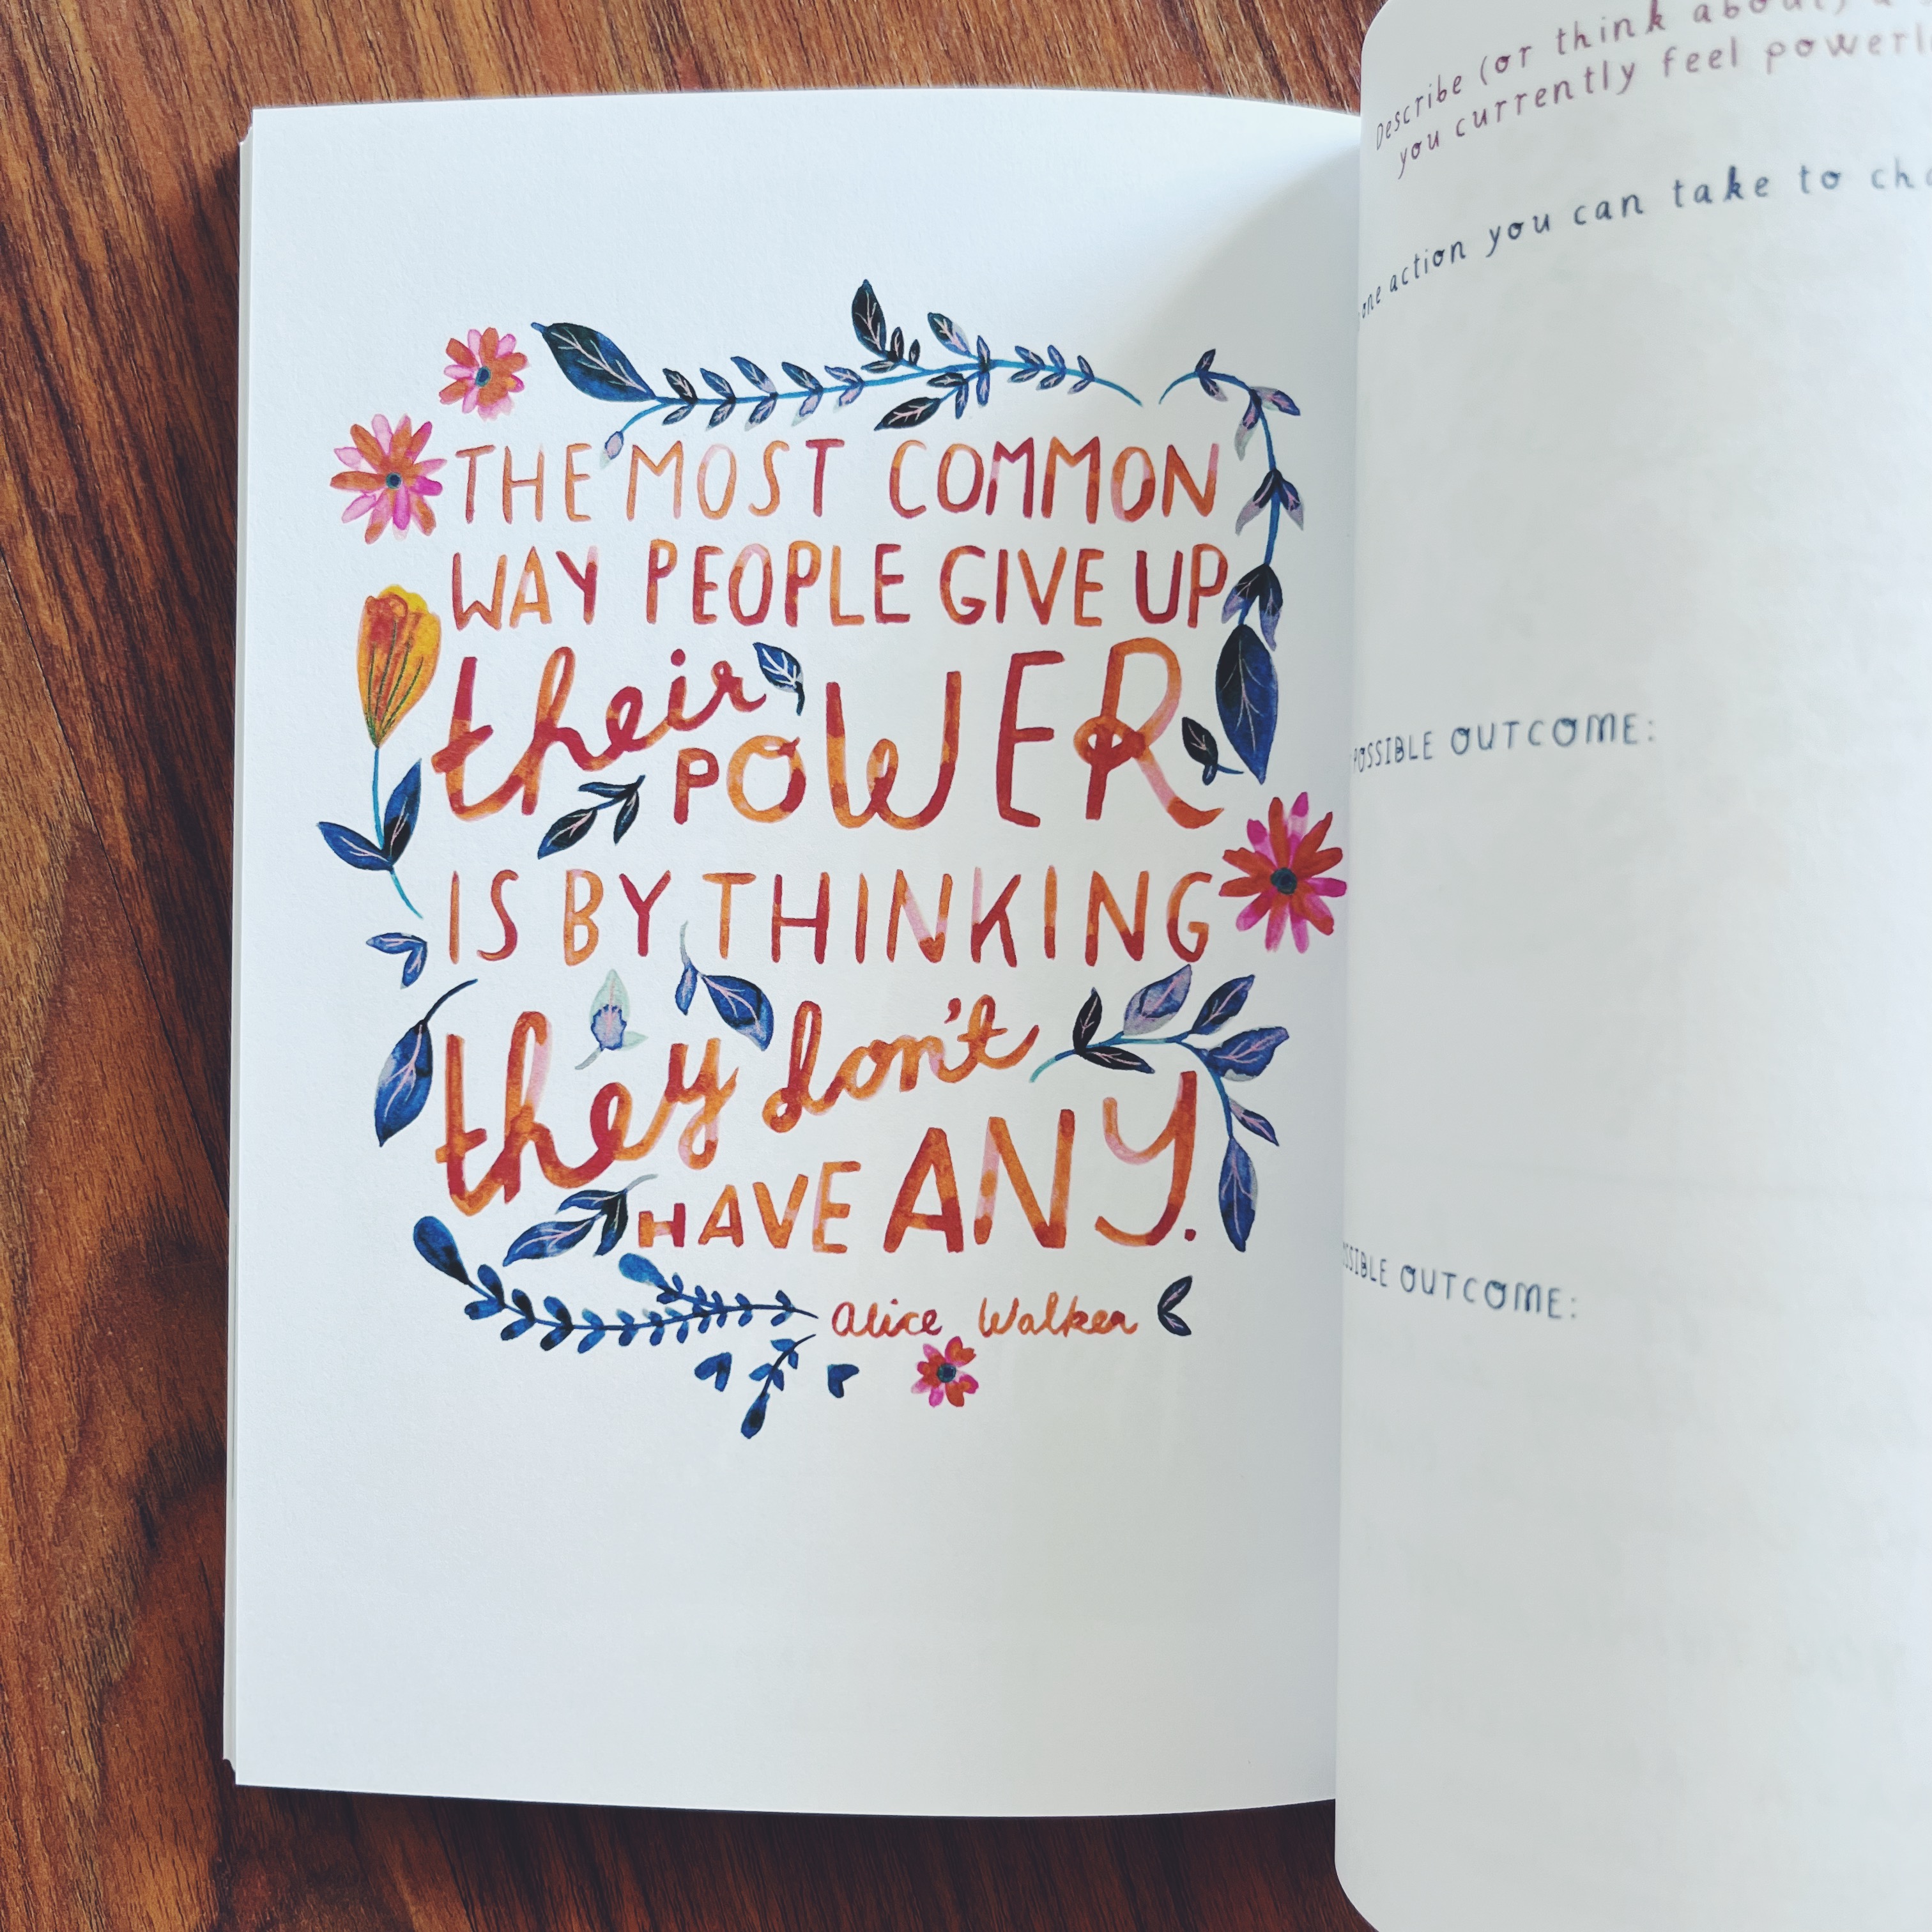 THE MOST COMMON
WAY PEOPLE GIVE UP
their POWER
IS BY THINKING
they don't
HAVE ANY.
Alice Walker
Describe (or think about)
you currently feel
one action you can take to
POSSIBLE OUTCOME:
OUTCOME: